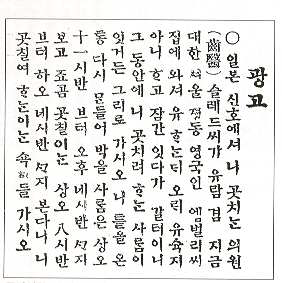 광고
○ 일본 신호에셔 니 곳치는 의원
(齒醫) 슐레드씨가 유람 겸 지금
대한 셔울 졍동 영국인 엠벌리씨
집에 와셔 유ᄒᆞᄂᆞᆫᄃᆡ 오ᄅᆡ 유슉지
아니 ᄒᆞ고 잠간 잇다가 갈터이니
그 동안에 니 곳치려 ᄒᆞᄂᆞᆫ 사ᄅᆞᆷ이
잇거든 그리로 가시오 니 틀을 온
통 다시 ᄆᆞᆫ들어 박을 사ᄅᆞᆷ은 샹오
十一시 반 브터 오후 네시반 ᄭᆞ지
보고 죠곰 곳칠이ᄂᆞᆫ 샹오 八시반
브터 하오 네시반 ᄭᆞ지 본다니 니
곳칠여 ᄒᆞᄂᆞᆫ이ᄂᆞᆫ 가시오